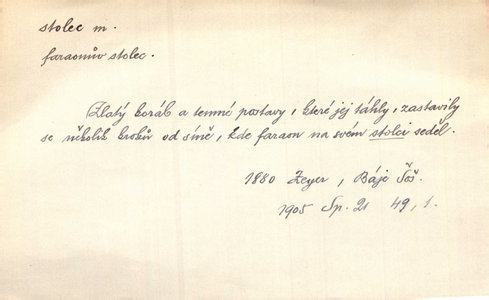 stolec m.
faraonův stolec.
Zlatý koráb a temné postavy, které jej táhly, zastavily
se několik kroků od síně, kde faraon na svém stolci seděl.
1880 Zeyer, Báje Šoš.
1905 Sp. 21 49, 1.